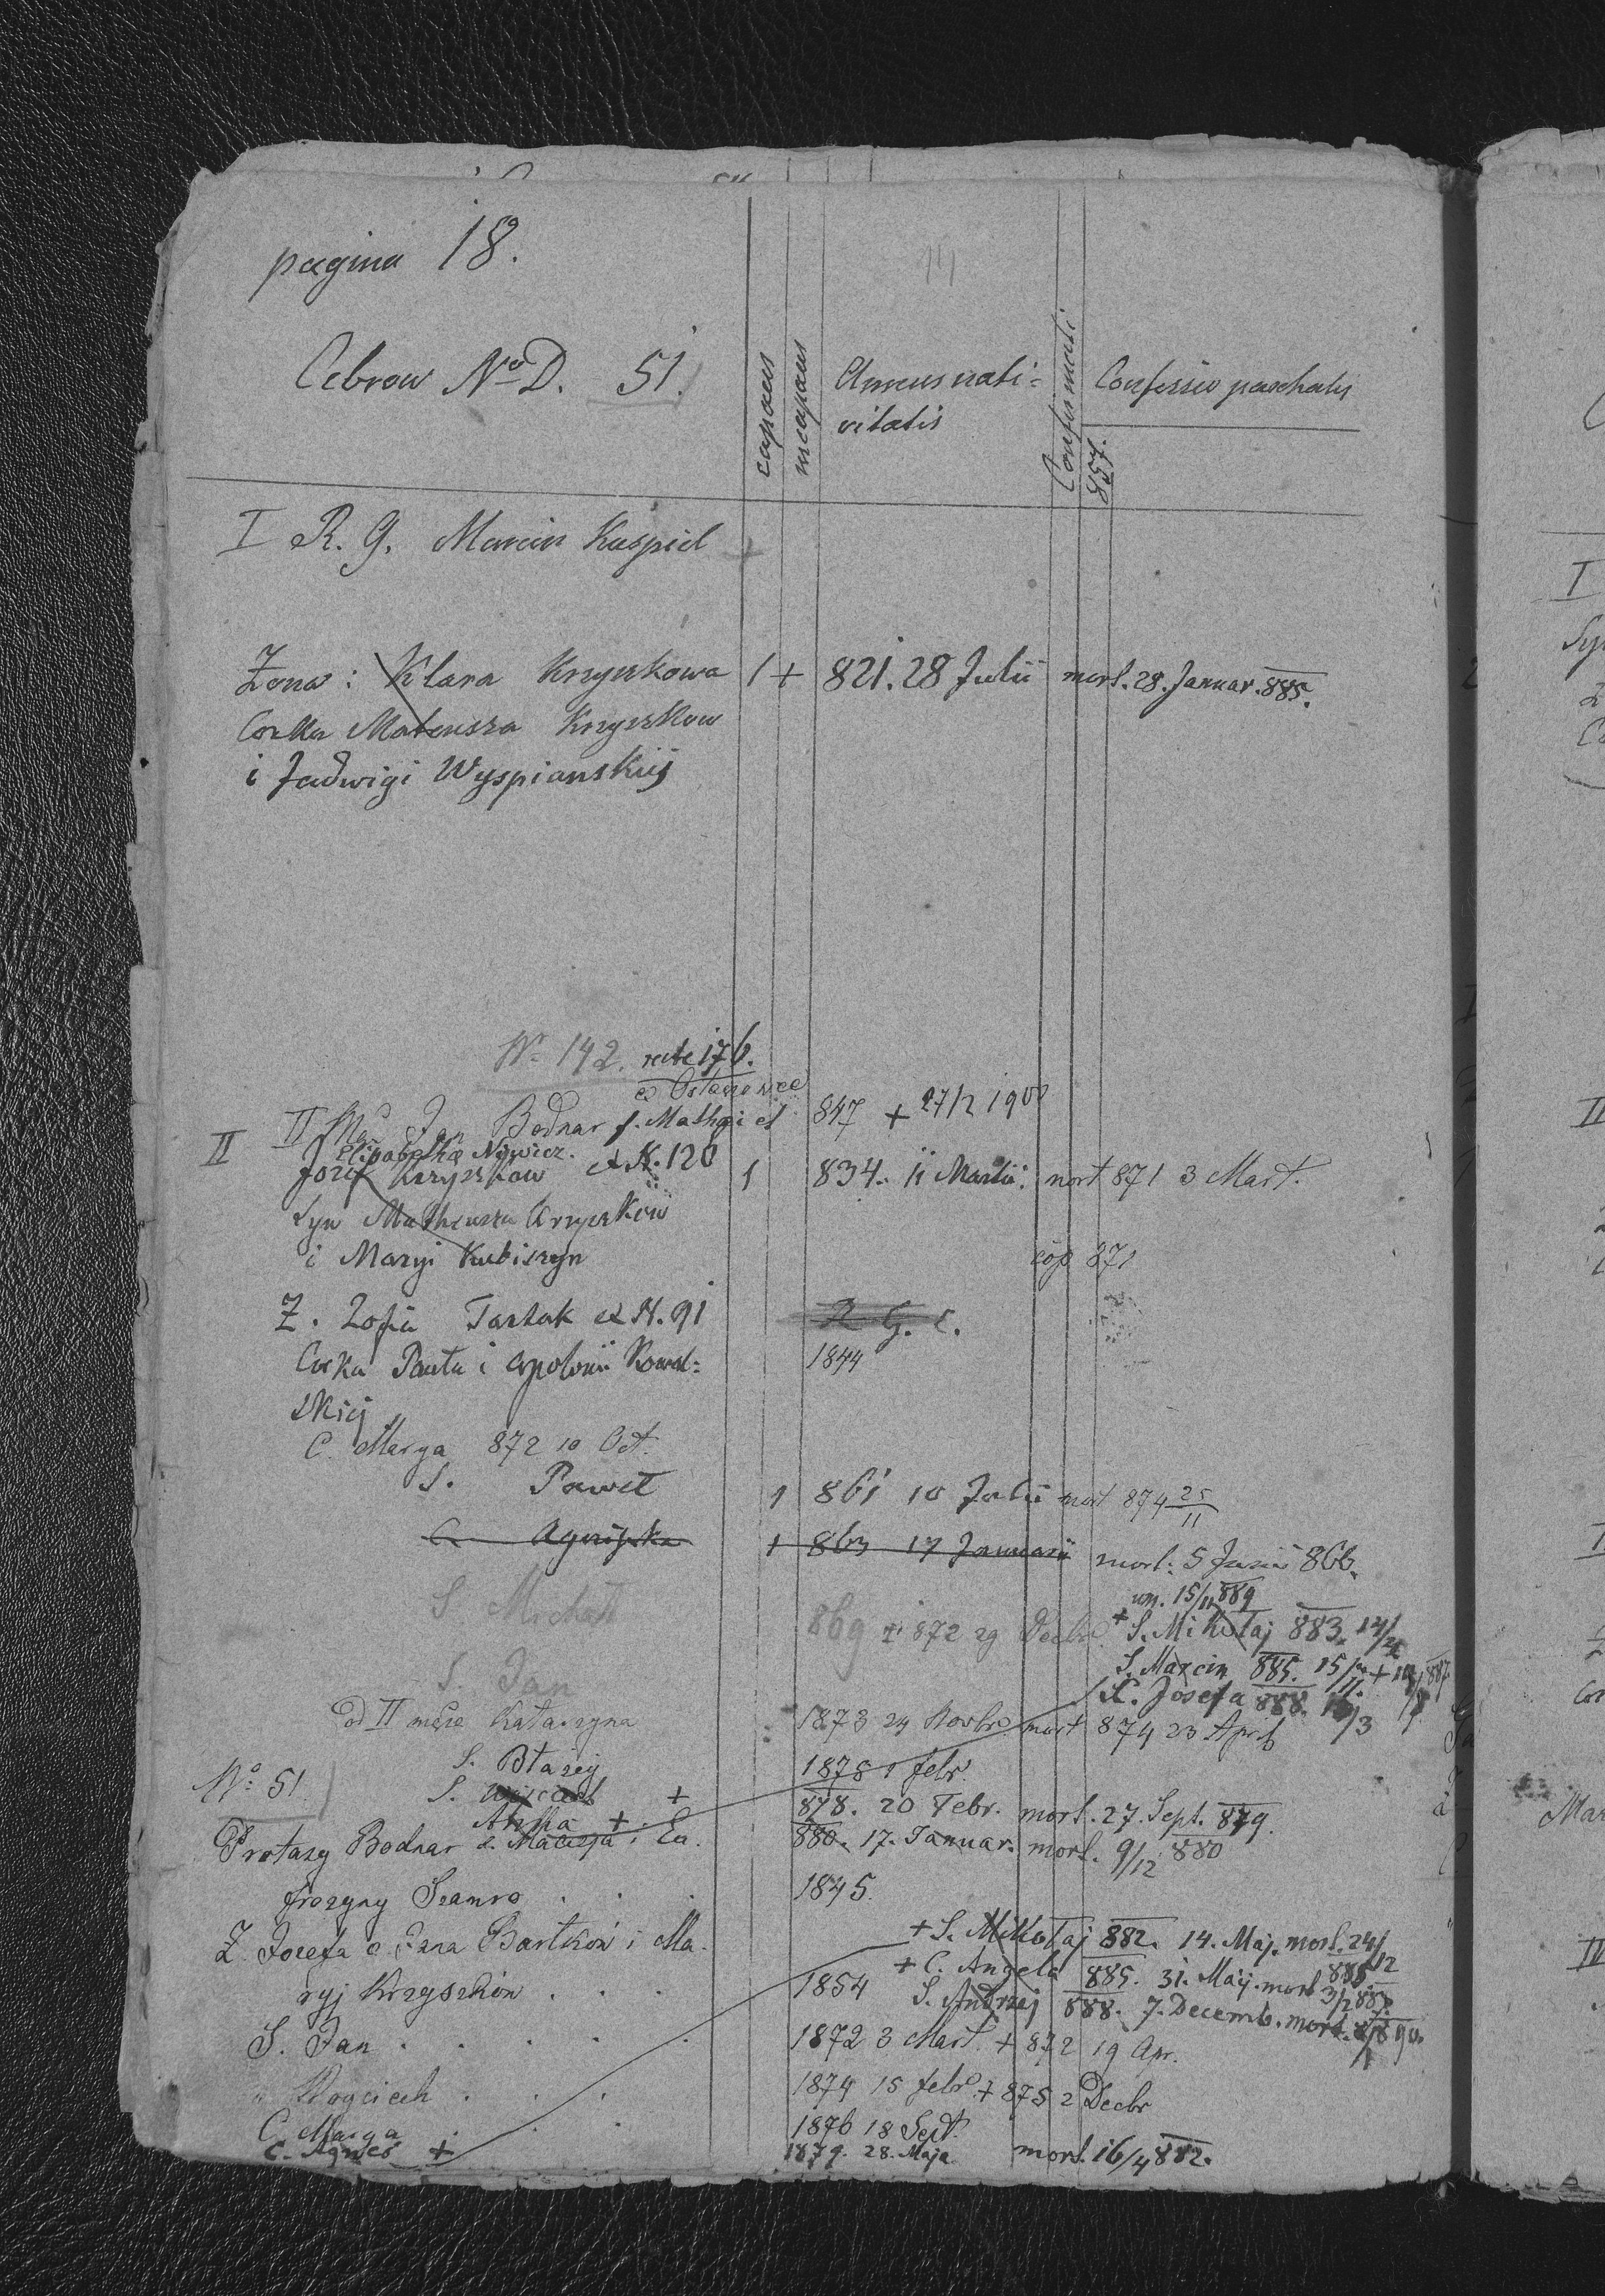 pagina 18.
Cebrow No D. 51.
capaces
incapaces
Annus nati=
vitatis
Confirmati
Confessio paschalis
857.
I R. G. Marcin Kaspid
Zona: Klara Krzyszkowa 1 + 821. 28 Julii mort. 28. Januar. 885.
Corka Mateusza Krzyszkow
i Jadwigi Wyspianskiij
No 142. recte 176.
II Jan Bodnar f. Mathaei et 847 + 27/2 1900
Elisabetha Nowicz.
II Jozef Krzyszkow ex N. 120 1 834. 11 Martii. mort 871 3 Mart.
Syn Matheusza Krzyszkow
i Maryi Kubiszyn cop 871
Z. Zofia Tartak ex N. 91 R. G. C.
Corka Pawła i Apolonii Kowal= 1844
skiej
C. Marya 872 10 Oct.
S. Paweł 1 861 10 Julii mort 874 25/11
C. Agnijszka 1 863 17 Januarii mort: 5 Junii 866.
15/11 889
S Michał 869 + 872 29 Decbr. + S. Mikołaj 883. 14/
S. Jan S. Marcin 885. 15/11. +
C. Josefa 888. /3
od II męża Katarzyna 1873 24 Novbr. mort 874 23 April
S. Błazej 1878 1 febr.
No 51 S. Wojciech + 878. 20 Febr. mort. 27. Sept. 879.
Anna + 880. 17. Januar. mort. 9/12 880
Protasy Bodnar s. Macieja i Eu.
frozyny Szamro . . . 1845.
+ S. Mikołaj 882. 14. Maj. mort. 24/12
Z. Jozefa c. Jana Bartków i Ma. + C. Angela 885. 31. Maij. mort 3/2 888
ryj Krzyszków . . . 1854 S. Andrzej 888. 7. Decemb. mort. 890.
S. Jan . . . . . 1872 3 Mart. + 872 19 Apr.
" Wojciech . . . 1874 15 febr. + 875 2 Decbr
C. Marya . . 1876 18 Sept.
C. Agnes + 1879. 28. Maja mort. 16/4 882.